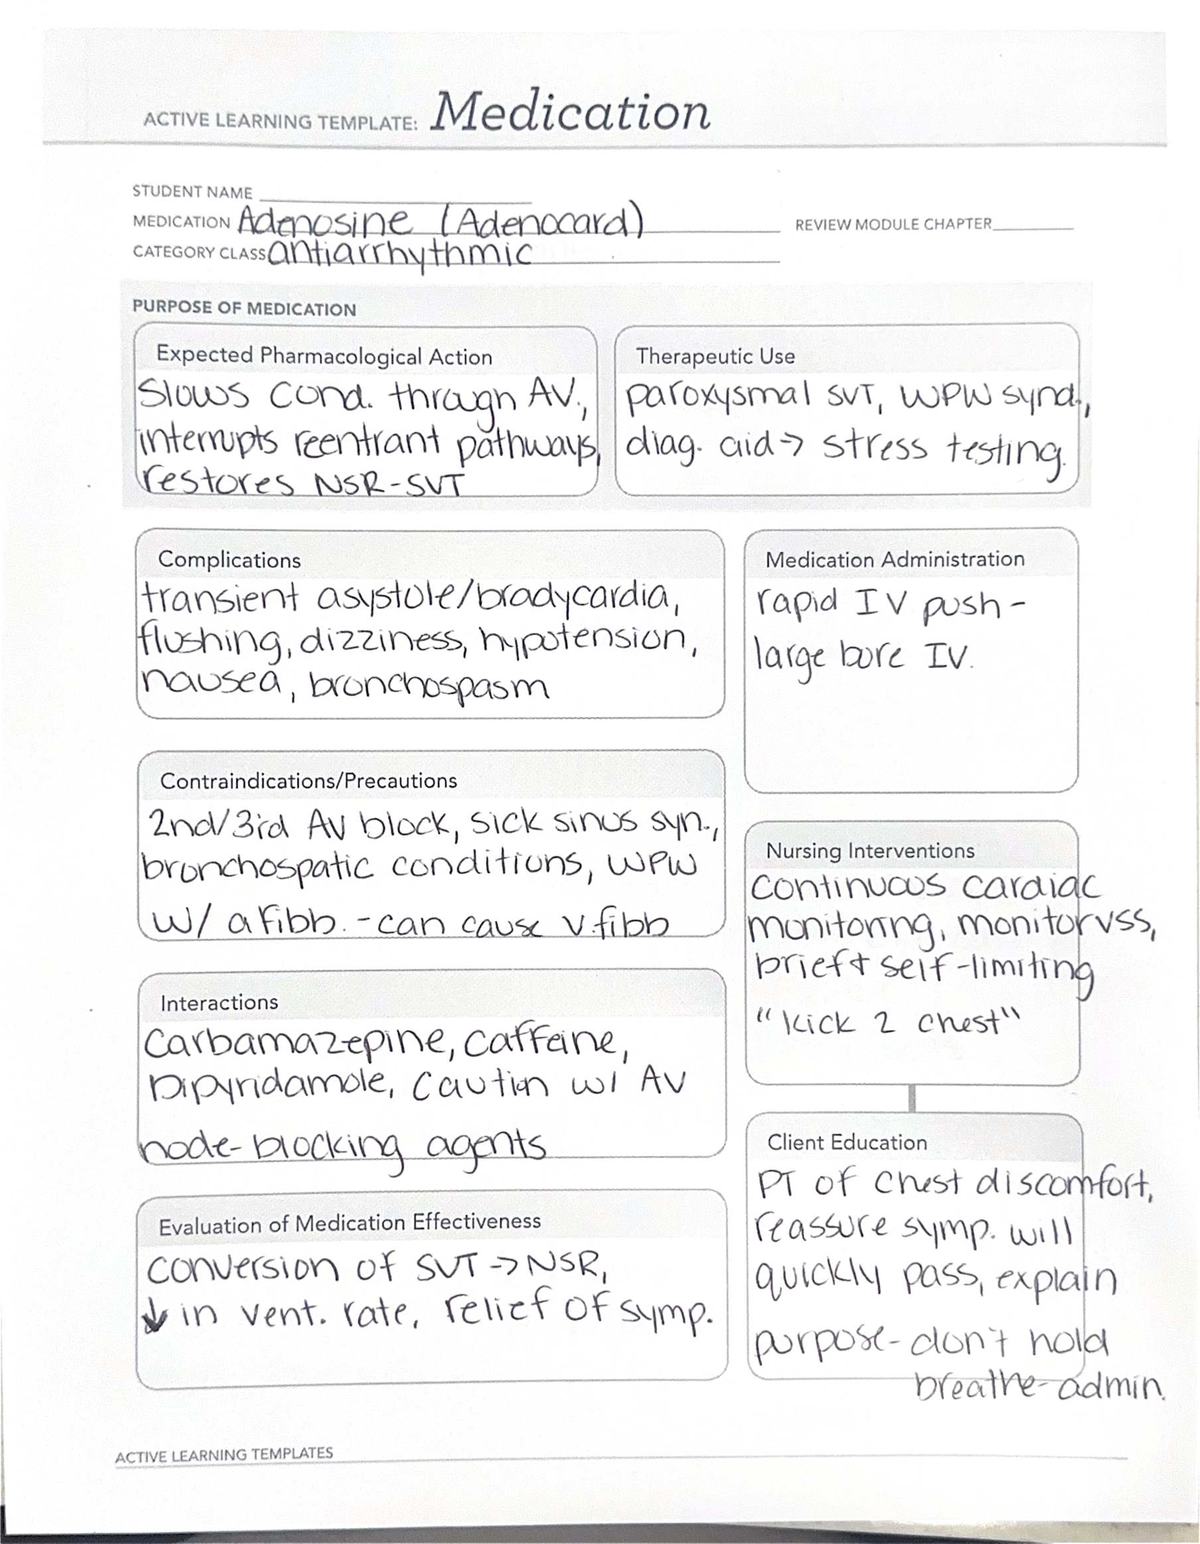 ACTIVE LEARNING TEMPLATE: Medication
STUDENT NAME
MEDICATION Adenosine (Adenocard)
REVIEW MODULE CHAPTER
CATEGORY CLASS antiarrhythmic
PURPOSE OF MEDICATION
Expected Pharmacological Action
Slows cond. through AV,
interrupts reentrant pathways,
restores NSR-SVT
Therapeutic Use
paroxysmal SVT, WPW synd.,
diag. aid→ stress testing.
Complications
transient asystole/bradycardia,
flushing, dizziness, hypotension,
nausea, bronchospasm
Medication Administration
rapid IV push-
large bore IV.
Contraindications/Precautions
2nd/3rd AV block, sick sinus syn.,
bronchospatic conditions, WPW
w/ a fibb. - can cause v.fibb
Nursing Interventions
continuous cardiac
monitoring, monitor vss,
brief + self-limiting
"kick 2 chest"
Interactions
Carbamazepine, caffeine,
Dipyridamole, caution w/ AV
node-blocking agents
Client Education
PT of chest discomfort,
reassure symp. will
quickly pass, explain
purpose- don't hold
breathe-admin.
Evaluation of Medication Effectiveness
conversion of SVT → NSR,
↓ in vent. rate, relief of symp.
ACTIVE LEARNING TEMPLATES